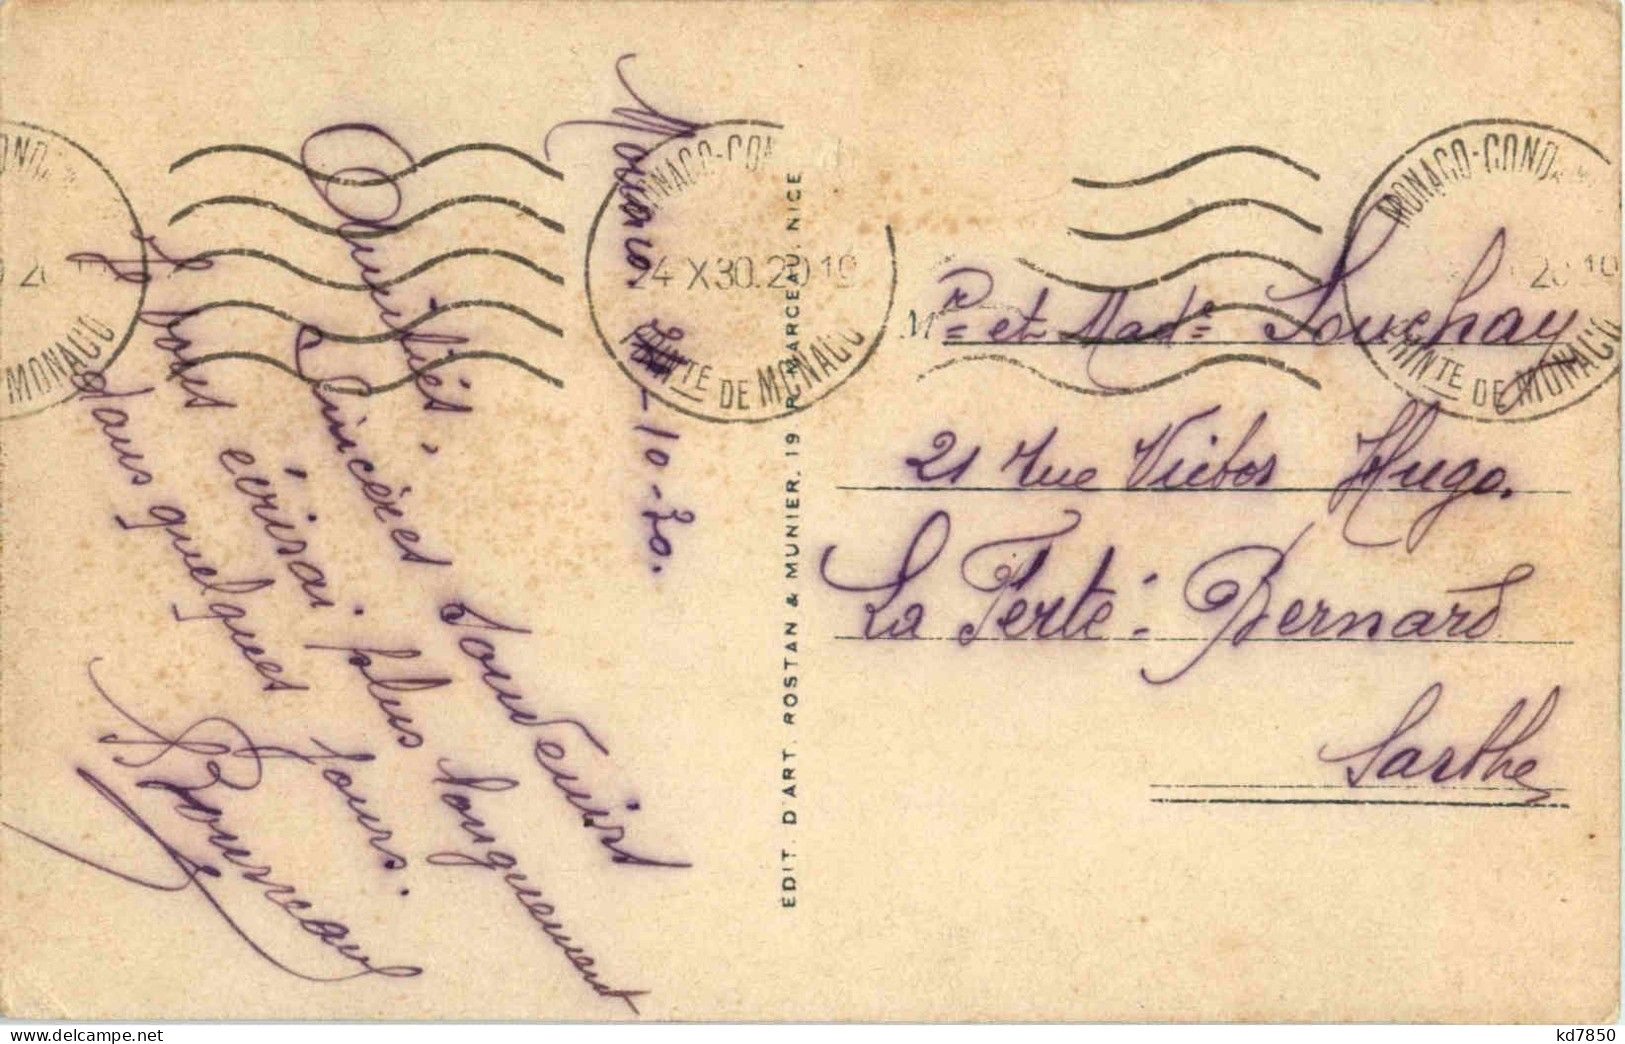 Monaco. 2-10-30.
Amitiés,
Sincères souvenirs
Je vous écrirai plus longuement
dans quelques jours.
Bourreau
EDIT. D'ART. ROSTAN & MUNIER. 19 R. MARCEAU. NICE
Mr et Made Souchay
21 rue Victor Hugo.
La Ferté-Bernard
Sarthe
MONACO-COND
4 X 30. 20 19
PRINTE DE MONACO
MONACO-COND
20 10
PRINTE DE MONACO
COND
20
MONACO
kd7850